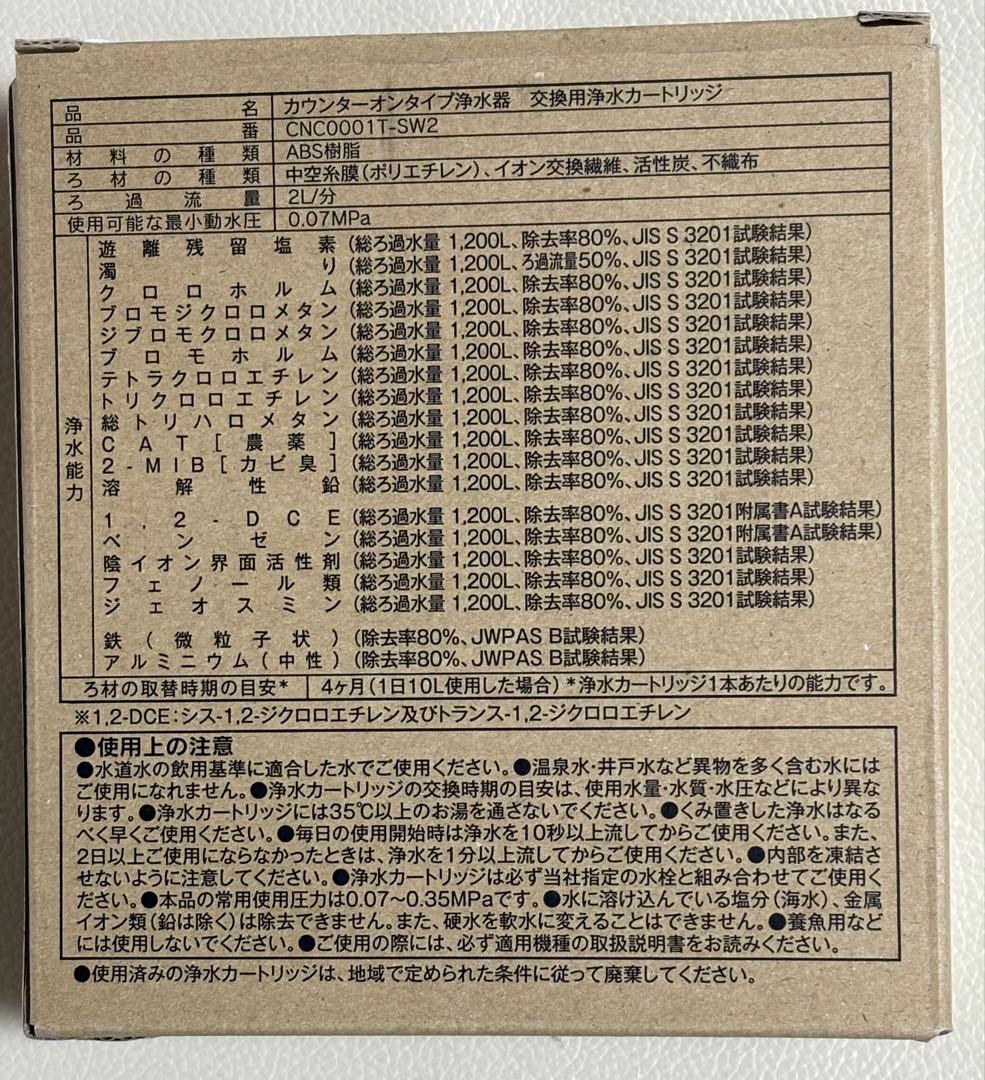 品名 カウンターオンタイプ浄水器 交換用浄水カートリッジ
品番 CNC0001T-SW2
材料の種類 ABS樹脂
ろ材の種類 中空糸膜(ポリエチレン)、イオン交換繊維、活性炭、不織布
ろ過流量 2L/分
使用可能な最小動水圧 0.07MPa
浄水能力
遊離残留塩素 (総ろ過水量 1,200L、除去率80%、JIS S 3201試験結果)
濁り (総ろ過水量 1,200L、ろ過流量50%、JIS S 3201試験結果)
クロロホルム (総ろ過水量 1,200L、除去率80%、JIS S 3201試験結果)
ブロモジクロロメタン (総ろ過水量 1,200L、除去率80%、JIS S 3201試験結果)
ジブロモクロロメタン (総ろ過水量 1,200L、除去率80%、JIS S 3201試験結果)
ブロモホルム (総ろ過水量 1,200L、除去率80%、JIS S 3201試験結果)
テトラクロロエチレン (総ろ過水量 1,200L、除去率80%、JIS S 3201試験結果)
トリクロロエチレン (総ろ過水量 1,200L、除去率80%、JIS S 3201試験結果)
総トリハロメタン (総ろ過水量 1,200L、除去率80%、JIS S 3201試験結果)
CAT[農薬] (総ろ過水量 1,200L、除去率80%、JIS S 3201試験結果)
2-MIB[カビ臭] (総ろ過水量 1,200L、除去率80%、JIS S 3201試験結果)
溶解性鉛 (総ろ過水量 1,200L、除去率80%、JIS S 3201試験結果)
1,2-DCE (総ろ過水量 1,200L、除去率80%、JIS S 3201附属書A試験結果)
ベンゼン (総ろ過水量 1,200L、除去率80%、JIS S 3201附属書A試験結果)
陰イオン界面活性剤 (総ろ過水量 1,200L、除去率80%、JIS S 3201試験結果)
フェノール類 (総ろ過水量 1,200L、除去率80%、JIS S 3201試験結果)
ジェオスミン (総ろ過水量 1,200L、除去率80%、JIS S 3201試験結果)
鉄(微粒子状) (除去率80%、JWPAS B試験結果)
アルミニウム(中性) (除去率80%、JWPAS B試験結果)
ろ材の取替時期の目安* 4ヶ月(1日10L使用した場合) *浄水カートリッジ1本あたりの能力です。
※1,2-DCE:シス-1,2-ジクロロエチレン及びトランス-1,2-ジクロロエチレン
●使用上の注意
●水道水の飲用基準に適合した水でご使用ください。●温泉水・井戸水など異物を多く含む水には
ご使用になれません。●浄水カートリッジの交換時期の目安は、使用水量・水質・水圧などにより異な
ります。●浄水カートリッジには35℃以上のお湯を通さないでください。●くみ置きした浄水はなる
べく早くご使用ください。●毎日の使用開始時は浄水を10秒以上流してからご使用ください。また、
2日以上ご使用にならなかったときは、浄水を1分以上流してからご使用ください。●内部を凍結さ
せないように注意してください。●浄水カートリッジは必ず当社指定の水栓と組み合わせてご使用く
ださい。●本品の常用使用圧力は0.07~0.35MPaです。●水に溶け込んでいる塩分(海水)、金属
イオン類(鉛は除く)は除去できません。また、硬水を軟水に変えることはできません。●養魚用など
には使用しないでください。●ご使用の際には、必ず適用機種の取扱説明書をお読みください。
●使用済みの浄水カートリッジは、地域で定められた条件に従って廃棄してください。